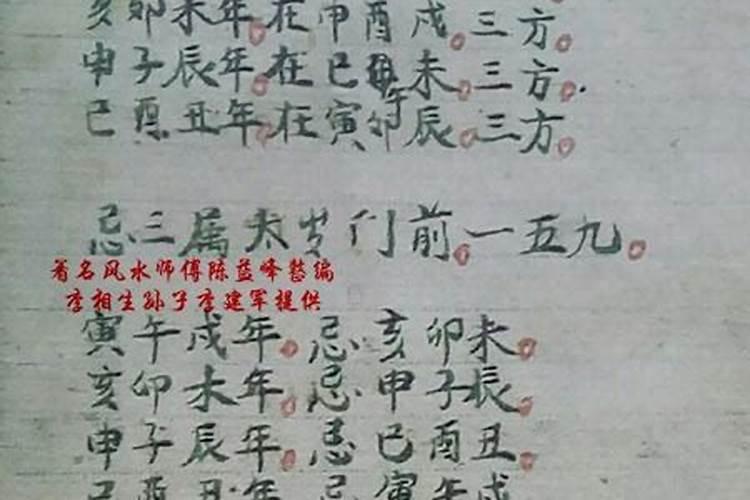 亥卯未年。在申酉戌。三方。
申子辰年。在巳午未。三方。
巳酉丑年。在寅卯辰。三方。
忌三属太岁门前。一五九。
著名风水师傅陈益峰整编
李相生孙子李建军提供
寅午戌年。忌亥卯未。
亥卯木年。忌申子辰。
申子辰年。忌巳酉丑。
巳酉丑年 忌寅午戌